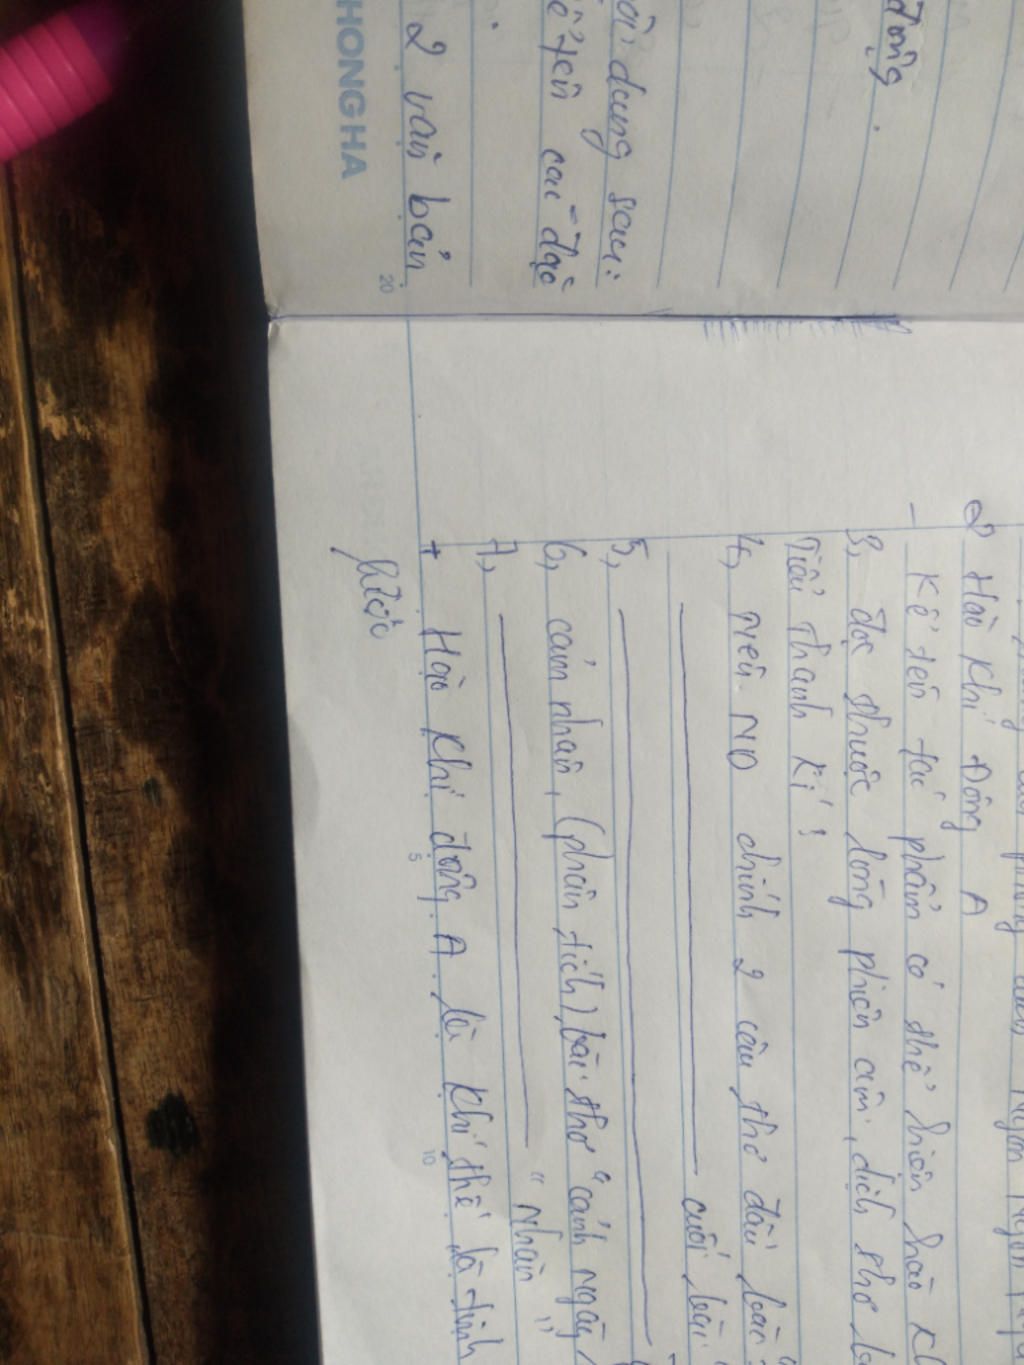 động.
ội dung sau:
ể tên các đạo
2 văn bản
HONG HA
20
2 Hào Khí Đông A
- Kể tên tác phẩm có thể hiện hào
3, đọc thuộc lòng phiên âm, dịch thơ
Tiểu Thanh Kí!
4, Nêu ND chính 2 câu thơ đầu bài
cuối bài
5,
6, cảm nhận, (phân tích) bài thơ "cảnh ngày
7, "Nhàn"
+ Hào khí đông A là khí thế là tinh
5
10